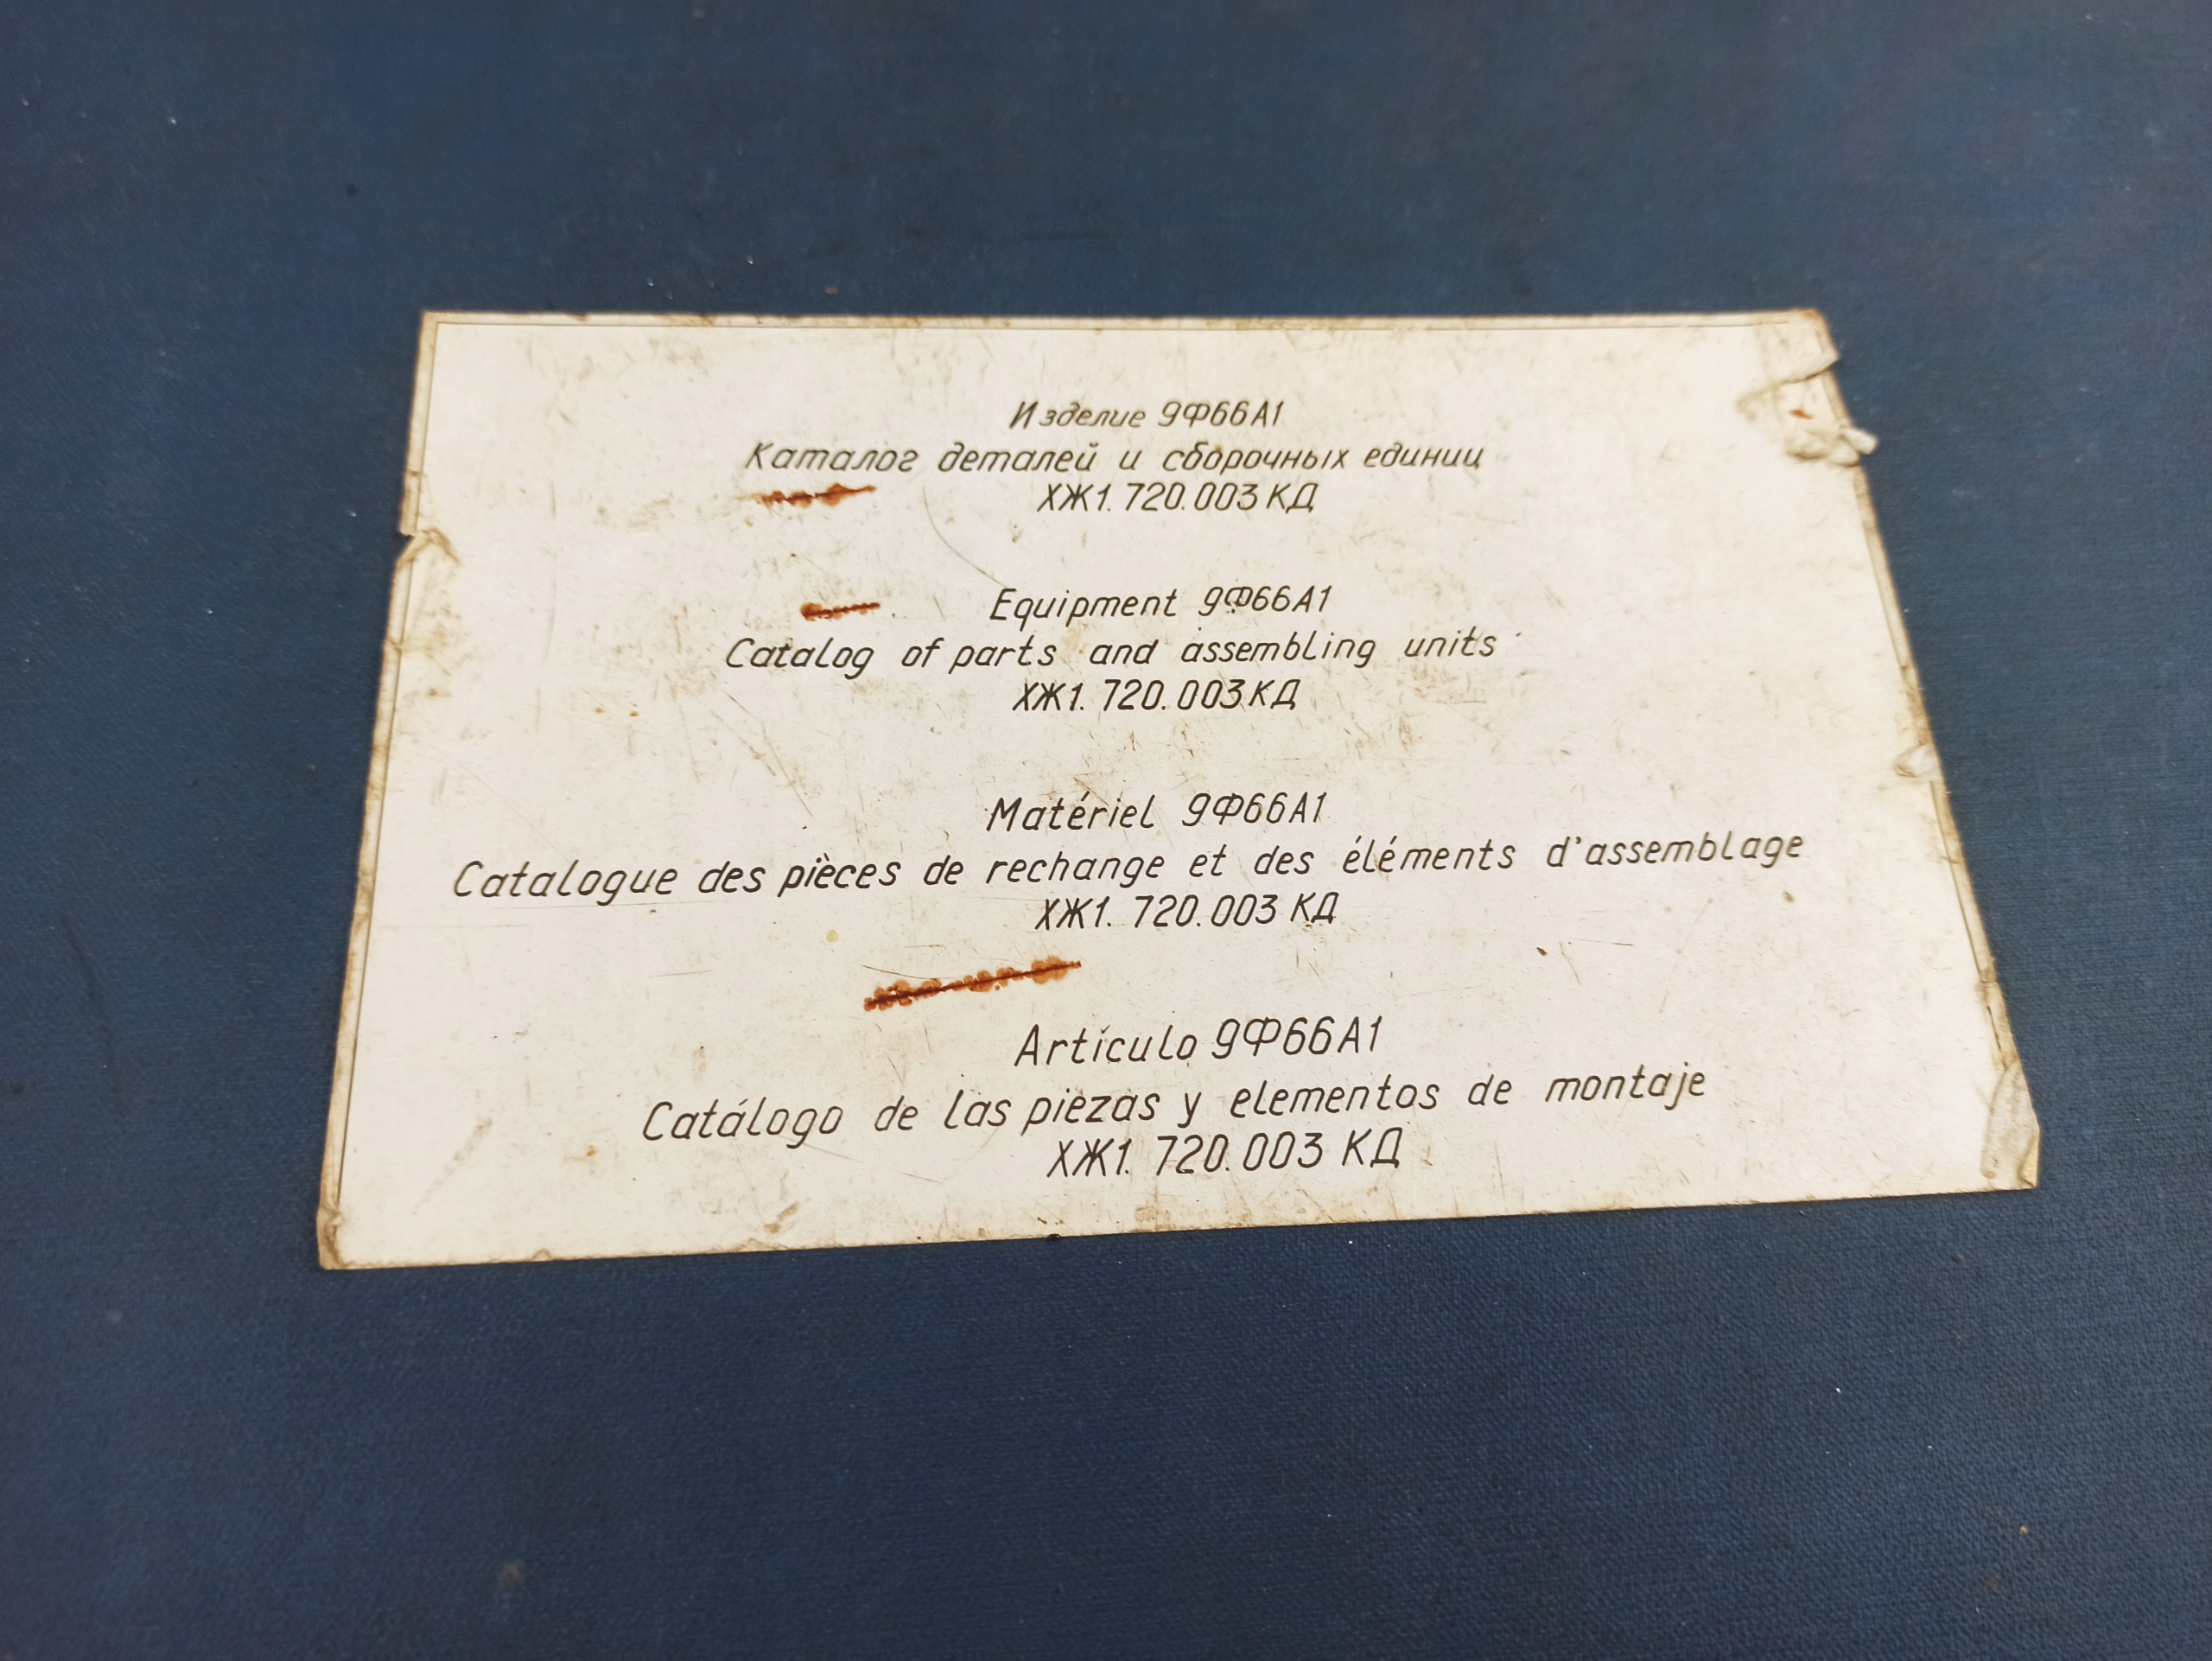 Изделие 9Ф66А1
Каталог деталей и сборочных единиц
ХЖ1.720.003 КД
Equipment 9Ф66А1
Catalog of parts and assembling units
ХЖ1.720.003 КД
Matériel 9Ф66А1
Catalogue des pièces de rechange et des éléments d'assemblage
ХЖ1.720.003 КД
Artículo 9Ф66А1
Catálogo de las piezas y elementos de montaje
ХЖ1.720.003 КД